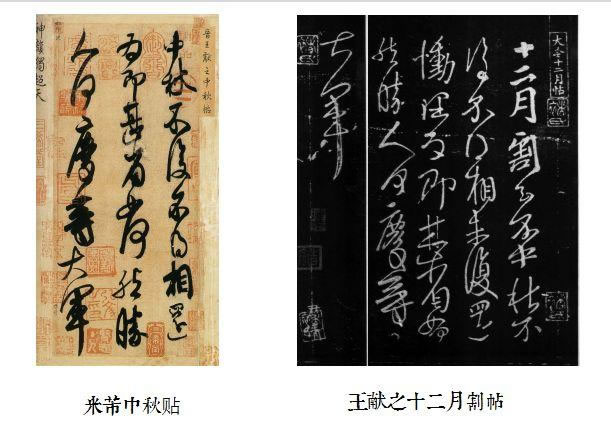 晉王獻之中秋帖
中秋不復不得相還
為即甚省如何然勝
人何慶等大軍
米芾中秋贴
大令十二月帖
十二月割至不中秋不
復不得相未復還
慟理為即甚省如
何然勝人何慶等
大軍
王献之十二月割帖